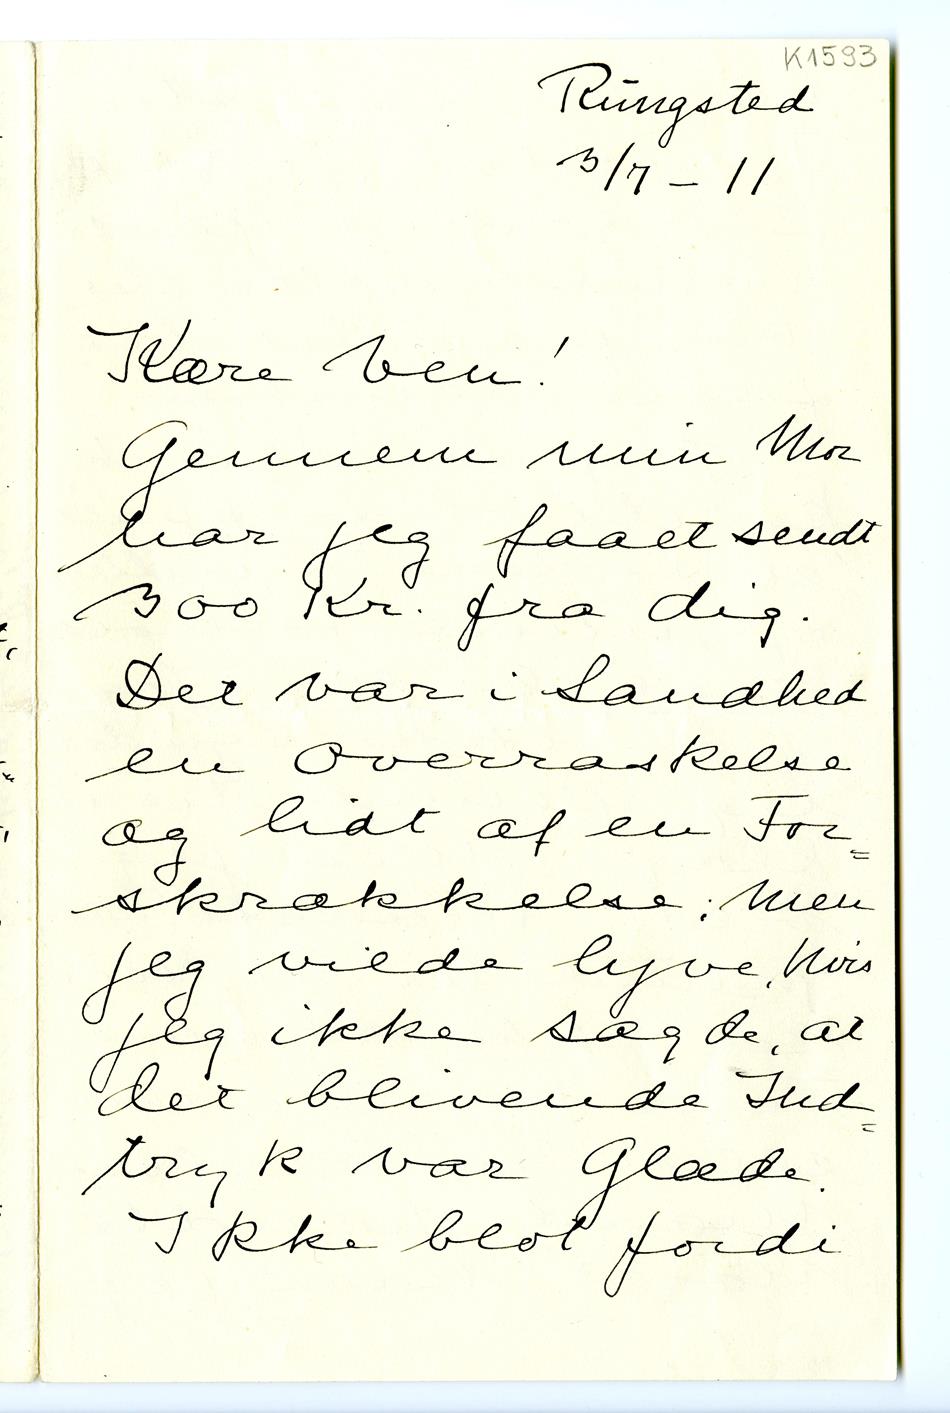 K1593
Rungsted
3/7 – 11
Kære Ven!
Gennem min Mor
har jeg faaet sendt
300 Kr. fra dig.
Det var i Sandhed
en Overraskelse
og lidt af en For=
skrækkelse; men
jeg vilde lyve, hvis
jeg ikke sagde, at
det blivende Ind=
tryk var Glæde.
Ikke blot fordi